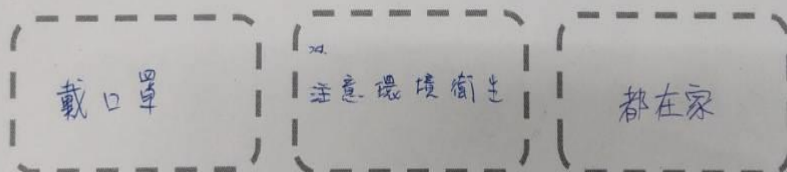 戴口罩
注意環境衛生
都在家